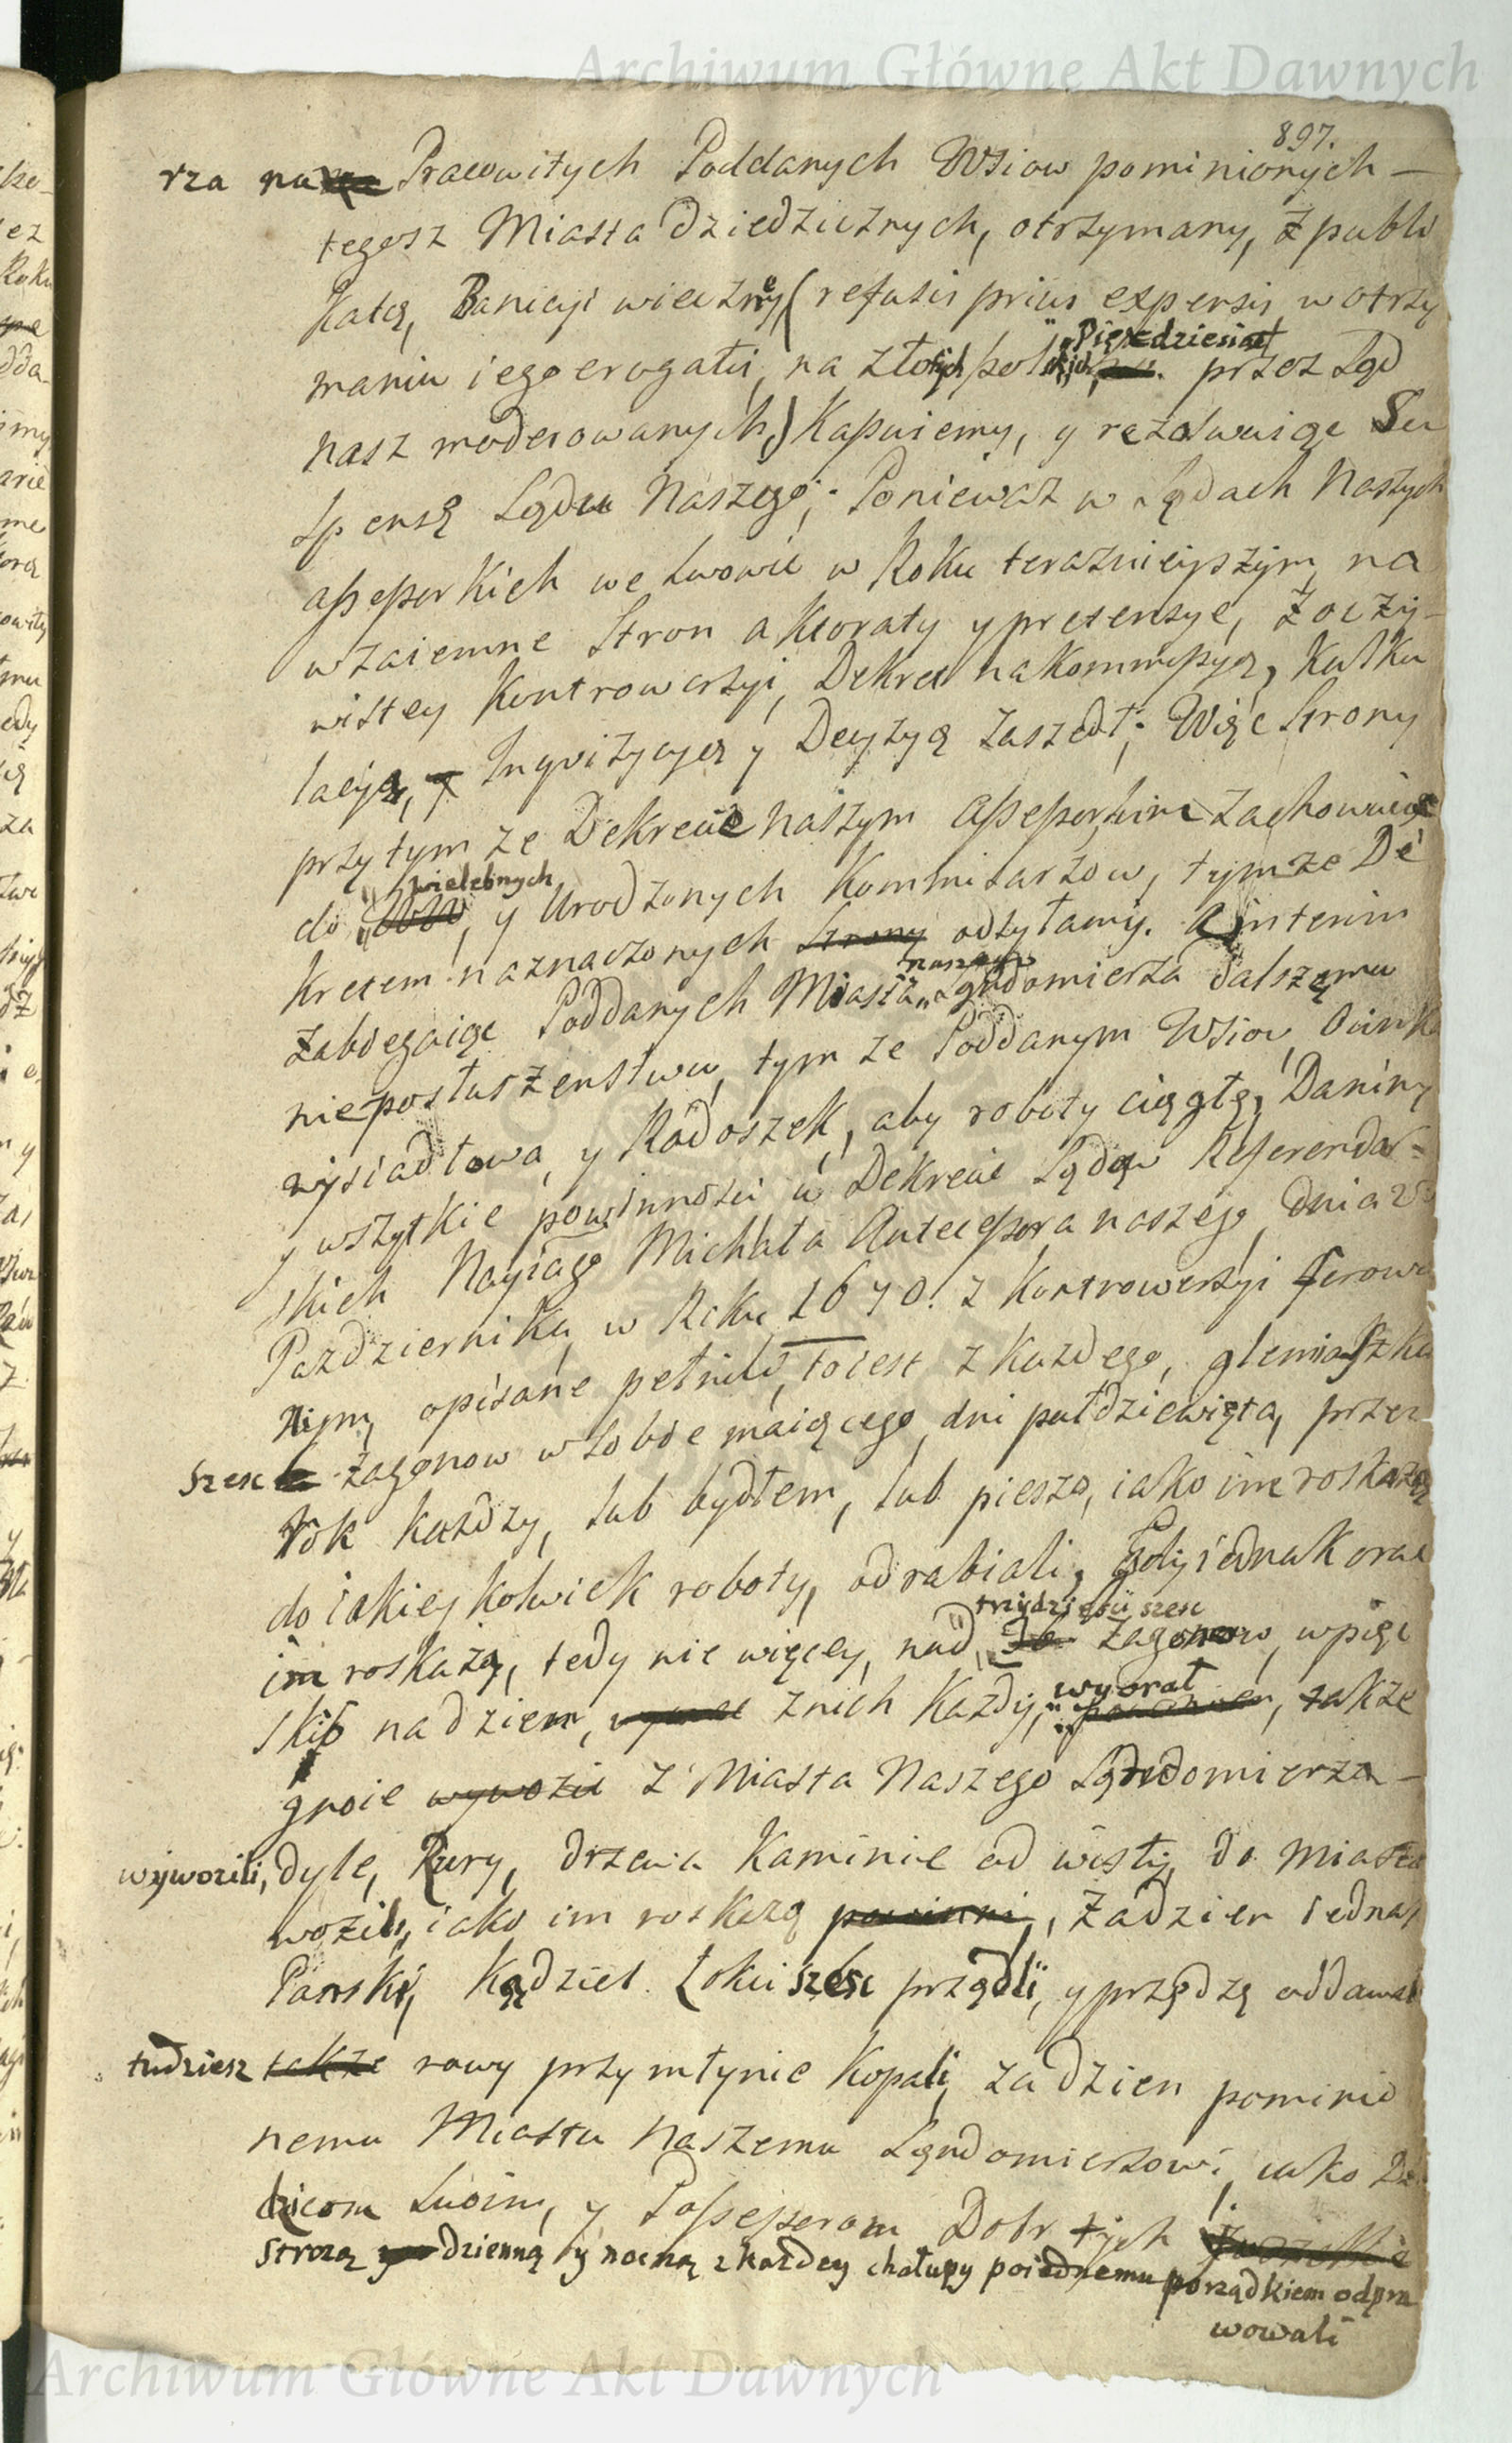 Archiwum Główne Akt Dawnych
897.
rza na Pracowitych Poddanych Wsiow pominionych –
tegosz Miasta dziedzicznych, otrzymany, z publi
katą, Banicyi wieczney (refusis prius expensis, w otrzy
maniu iego erogatis, na złotych polskich Pięcdziesiąt przez Sąd
nasz moderowanych,) Kassuiemy, y rezolwuiąc Su
spensę Sądu Naszego; Poniewasz w Sądach Naszych
assessorskich we Lwowie w Roku teraznieyszym, na
wzaiemne Stron aktoraty y pretensye, z oczy-
wistey Kontrowersyi, Dekret na Kommissyą, Kalku
lacyą, Inqvizycyą y Decyzyą zaszedł; Więc Strony
przy tym ze Dekrecie naszym assessorskim zachowuiąc
do Wielebnych, y Urodzonych Kommisarzow, tymze De
kretem naznaczonych odsyłamy. A interim
zabiegaiąc Poddanych Miasta naszego Sandomierza dalszemu
nieposłuszenstwu, tym ze Poddanym Wsiow
wysiadłowa, y Radoszek, aby roboty ciągłe, Daniny
y wszytkie powinnosci w Dekrecie Sądow Referendar-
skich Nayias: Michała Antecessora naszego, dnia
Pazdziernika, w Roku 1670. z Kontrowersyi ferowa
nym, opisane pełnili, to iest z kazdego,
szesc zagonow w sobie maiącego, dni pułdziewięta, przez
rok kazdy, lub bydłem, lub pieszo, iako im roskazą
do iakiey kolwiek roboty, odrabiali, Gdy iednak orac
im roskazą, tedy nie więcey, nad trzydziesci szesc zagonow, w pięc
skib na dzien, z nich kazdy, wyorał, takze
gnoie z Miasta Naszego Sandomierza –
wywozili, dyle, Rury, drzewa Kaminie od wisły, do Miasta
wozili, iako im roskazą, Za dzien iednaſ
Panski, Kądziel łokci szesc przędli, y przędzę oddawal
tudziesz rowy przy młynie Kopali, za dzien pominio
nemu Miastu Naszemu Sandomierzowi, iako Dzie
dzicom Swoim, y Possessorom Dobr tych
Strozą dzienną y nocną z kazdey chałupy po iednemu porządkiem odpra
wowali
Archiwum Główne Akt Dawnych